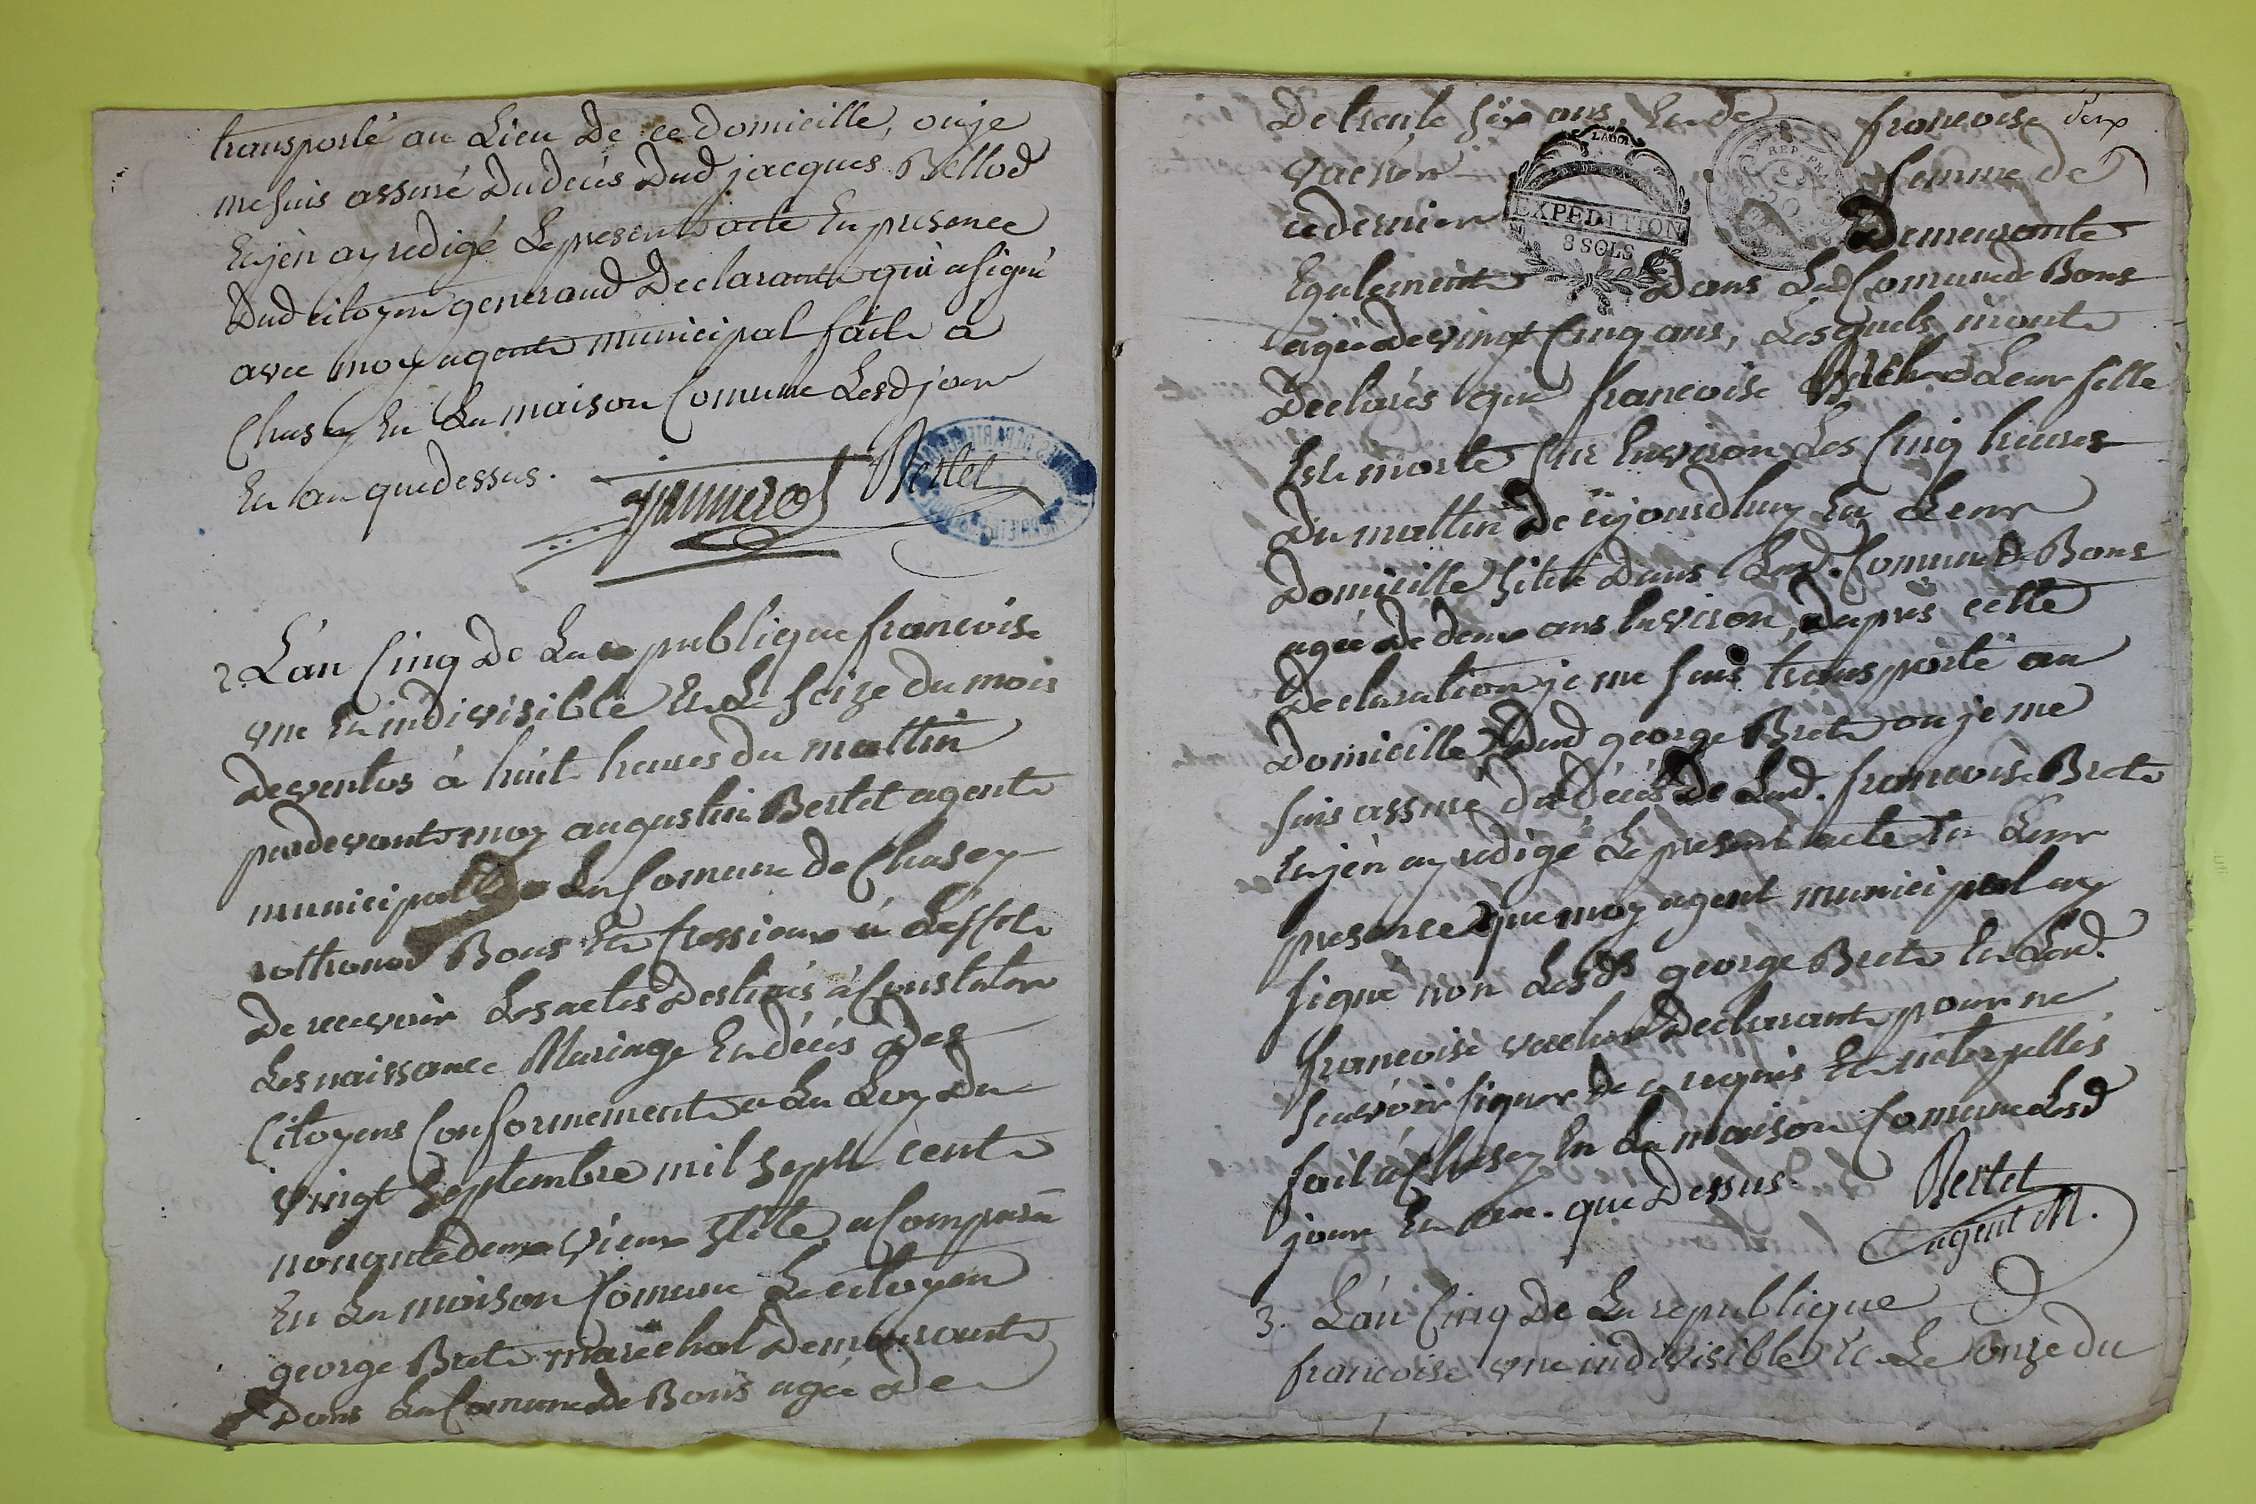 transporté au Lieu De ce domicille, ou je
me suis assuré Du decés Dud jacques Bellod
Et jén ay redigé Le present acte En presence
Dud citoyen generaud Declarant qui a signé
avec moy agent municipal fait a
Chasey En La maison Comune Lesd jour
Et an que dessus.
Bertet
2. L'an Cinq De La republique francoise
vne Et indivisible Et Le seize du mois
De ventos à huit heures du mattin
pardevant moy augustin Bertet agent
municipal De La Comune de Chasey
rothonod Bons Et Cressieux à L'effet
De recevoir Les actes Destinés à Constater
Les naissance Mariage Et décés Des
Citoyens Conformement a La Loy Du
vingt Septembre mil Sept cent
nonante deux vieux stile a Comparu
En La maison Comune Le citoyen
george Bret maréchal Demeurant
Dans La Comune De Bons agée De
De trente six ans, Et de francoise
deux
vacher femme de
ce dernier Demeurante
Egalement Dans Lad Comune de Bons
agée de vingt Cinq ans, Lesquels m'ont
Declarés que francoise Leur fille
Est morte Sur Environ Les Cinq heures
Du mattin De cejourdhuy En Leur
Domicille sitté Dans Lad. Comune De Bons
agée De deux ans Environ, Daprès cette
Declaration je me suis transporté au
Domicille Dud george Bret ou je me
suis assuré du Décés De Lad. francoise Bret
Et jén ay redigé Le present acte En Leur
presence que moy agent municipal ay
signé non Lesds george Bret Et Lad.
francoise vacher Declarant pour ne
scavoir signer De ce requis Et interpellés
fait à Chasey En La maison Comune Lesd
jour Et an. que Dessus.
Bertet
agent M.
3. L'an Cinq De La republique
francoise vne indivisible Et Le onze du
LABOR
EXPEDITION
8 SOLS
REP. FRA